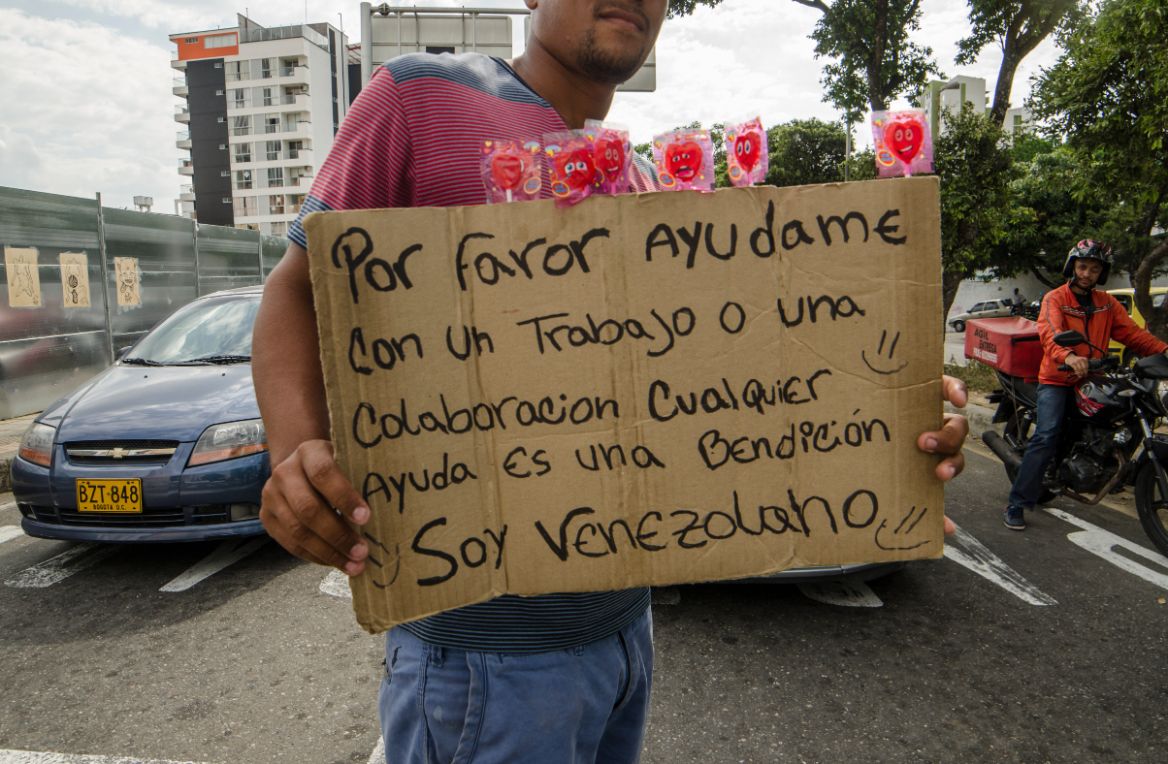 Por Favor Ayudame
Con un Trabajo o una
Colaboracion Cualquier
Ayuda Es una Bendición
Soy Venezolano
BZT·848
BOGOTA D.C.